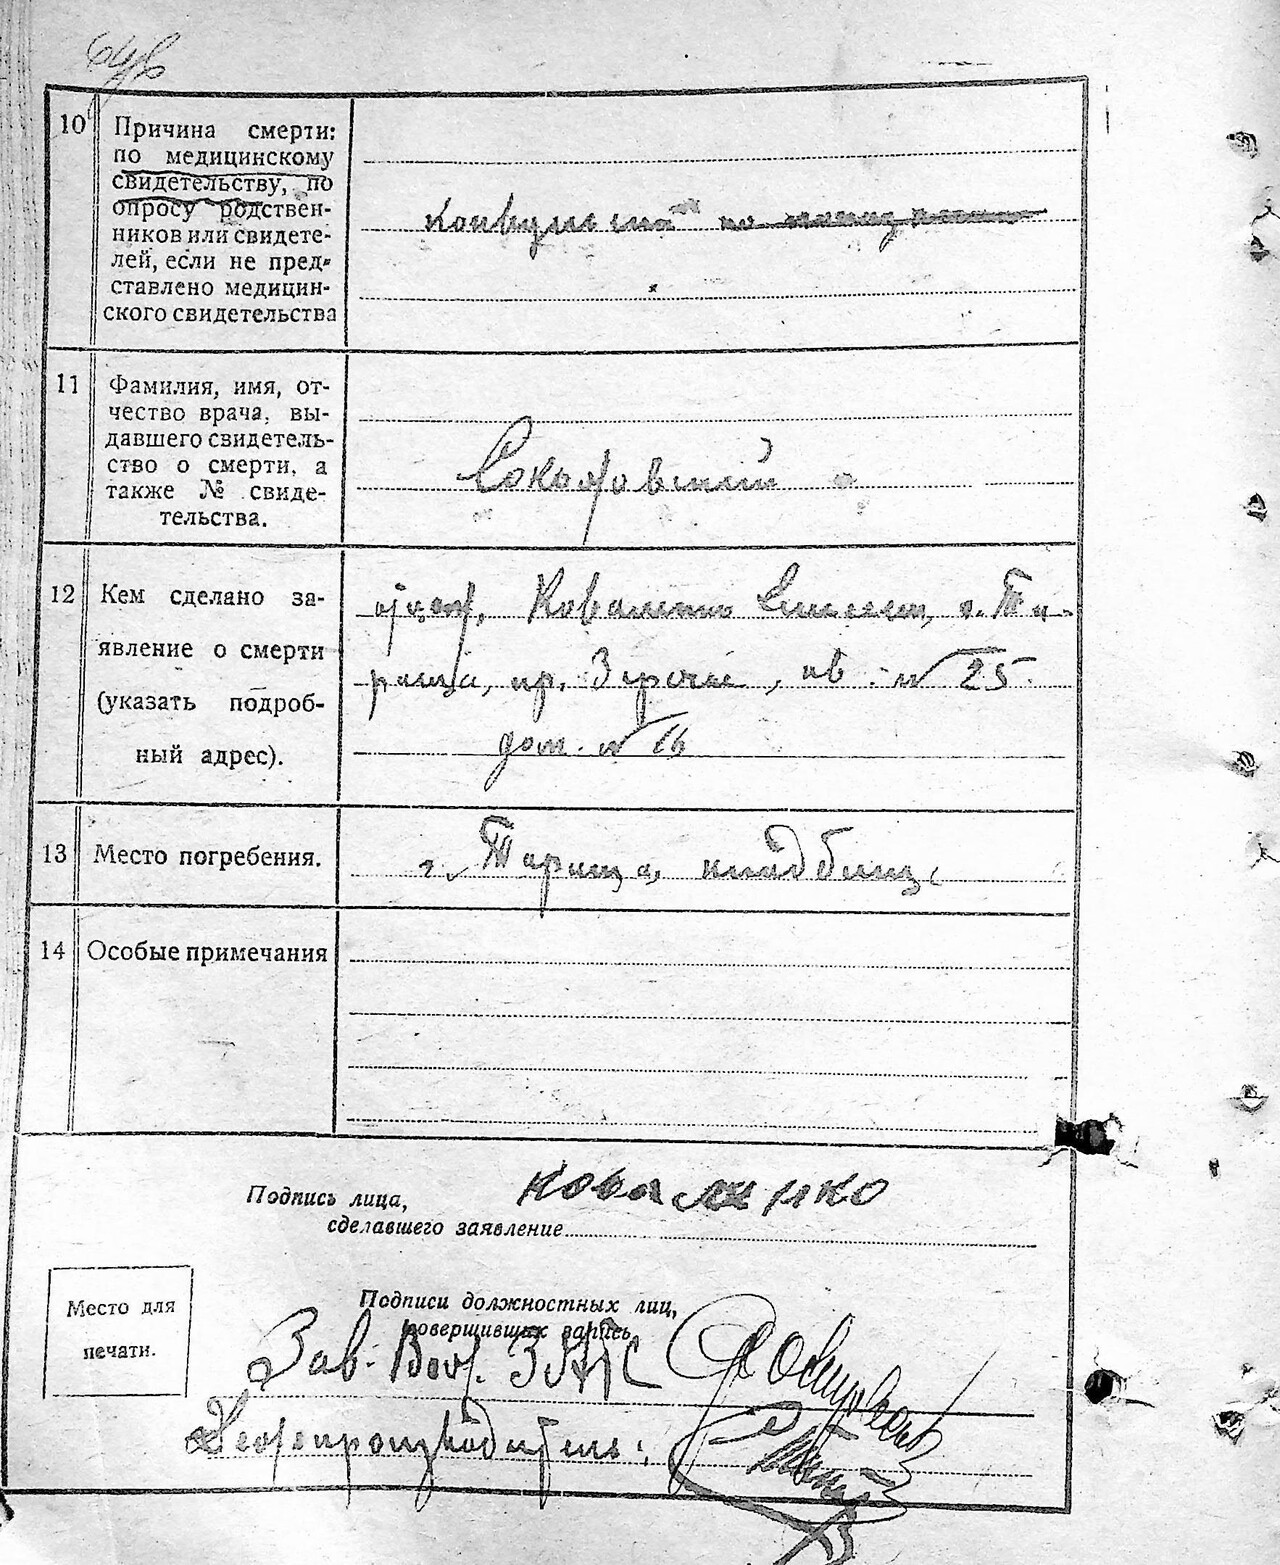 10
Причина смерти:
по медицинскому
свидетельству, по
опросу родствен-
ников или свидете-
лей, если не пред-
ставлено медицин-
ского свидетельства
11
Фамилия, имя, от-
чество врача, вы-
давшего свидетель-
ство о смерти, а
также № свиде-
тельства.
12
Кем сделано за-
явление о смерти
(указать подроб-
ный адрес).
кв. № 25
дом. № 16
13
Место погребения.
г. Тараща,
14
Особые примечания
Подпись лица,
сделавшего заявление
Коваленко
Место для
печати.
Подписи должностных лиц,
совершивших запись
Зав. ЗАГС
Делопроизводитель: